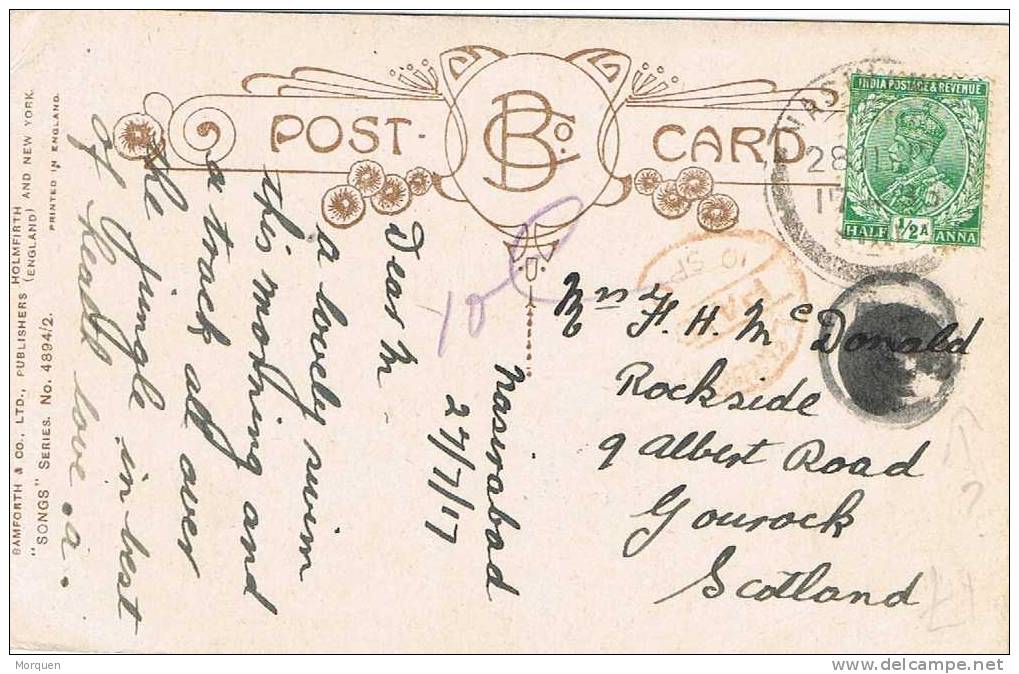 POST CARD
BCo.
INDIA POSTAGE & REVENUE
HALF 1/2A ANNA
NAS
28
17
10 SP
10
Nasirabad
27/7/17
Dear M
a lovely swim
this morning and
a track all over
the jungle in best
of health love. a.
Mrs F. H. McDonald
Rockside
9 Albert Road
Gourock
Scotland
BAMFORTH & CO., LTD., PUBLISHERS HOLMFIRTH (ENGLAND) AND NEW YORK.
"SONGS" SERIES. No. 4894/2.
PRINTED IN ENGLAND.
Morquen
delcampe.net